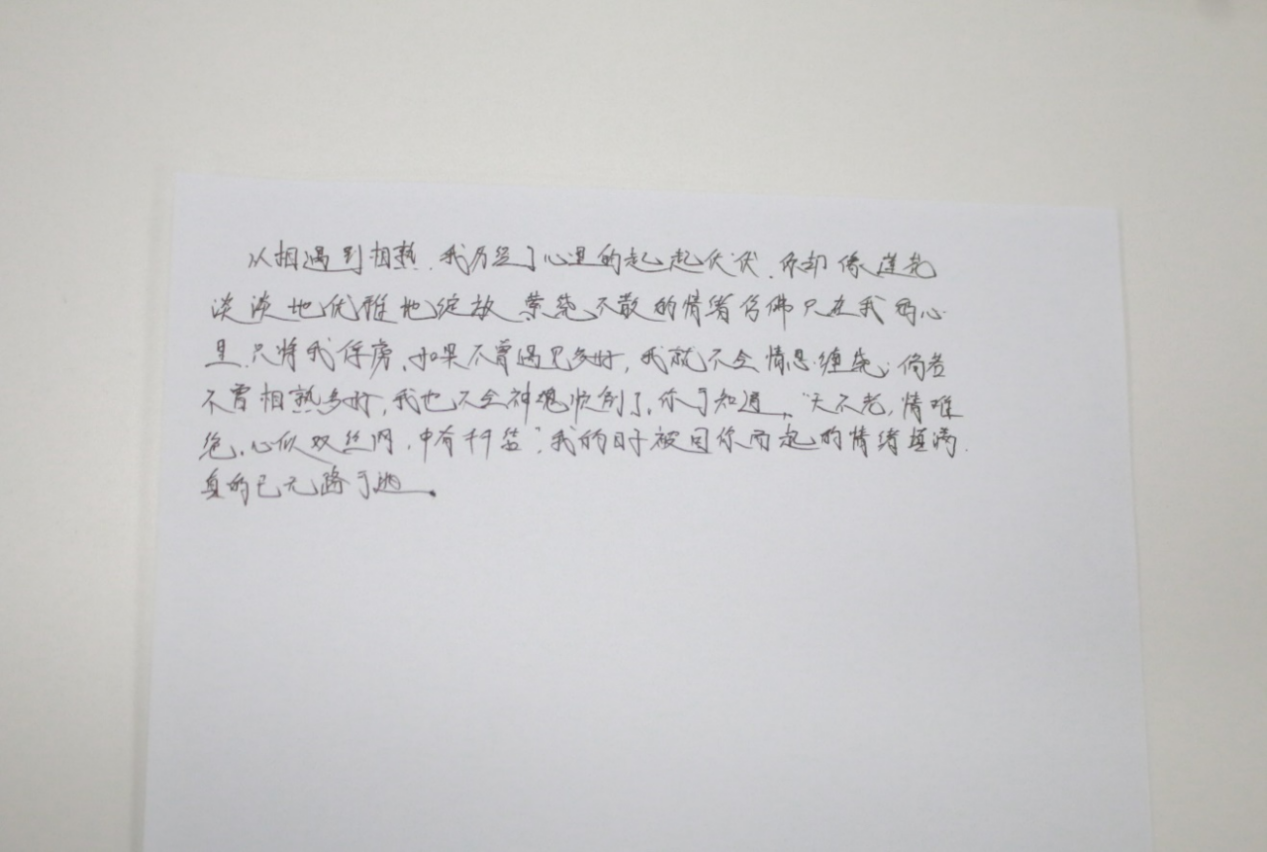 从相遇到相熟，我历经了心里的起起伏伏，你却像莲花
淡淡地优雅地绽放，萦绕不散的情绪仿佛只在我的心
里，只将我俘虏，如果不曾遇见多好，我就不会情思缠绕；倘若
不曾相熟多好，我也不会神魂颠倒了，你可知道，"天不老，情难
绝，心似双丝网，中有千千结"，我的日子被因你而起的情绪填满，
真的已无路可逃。